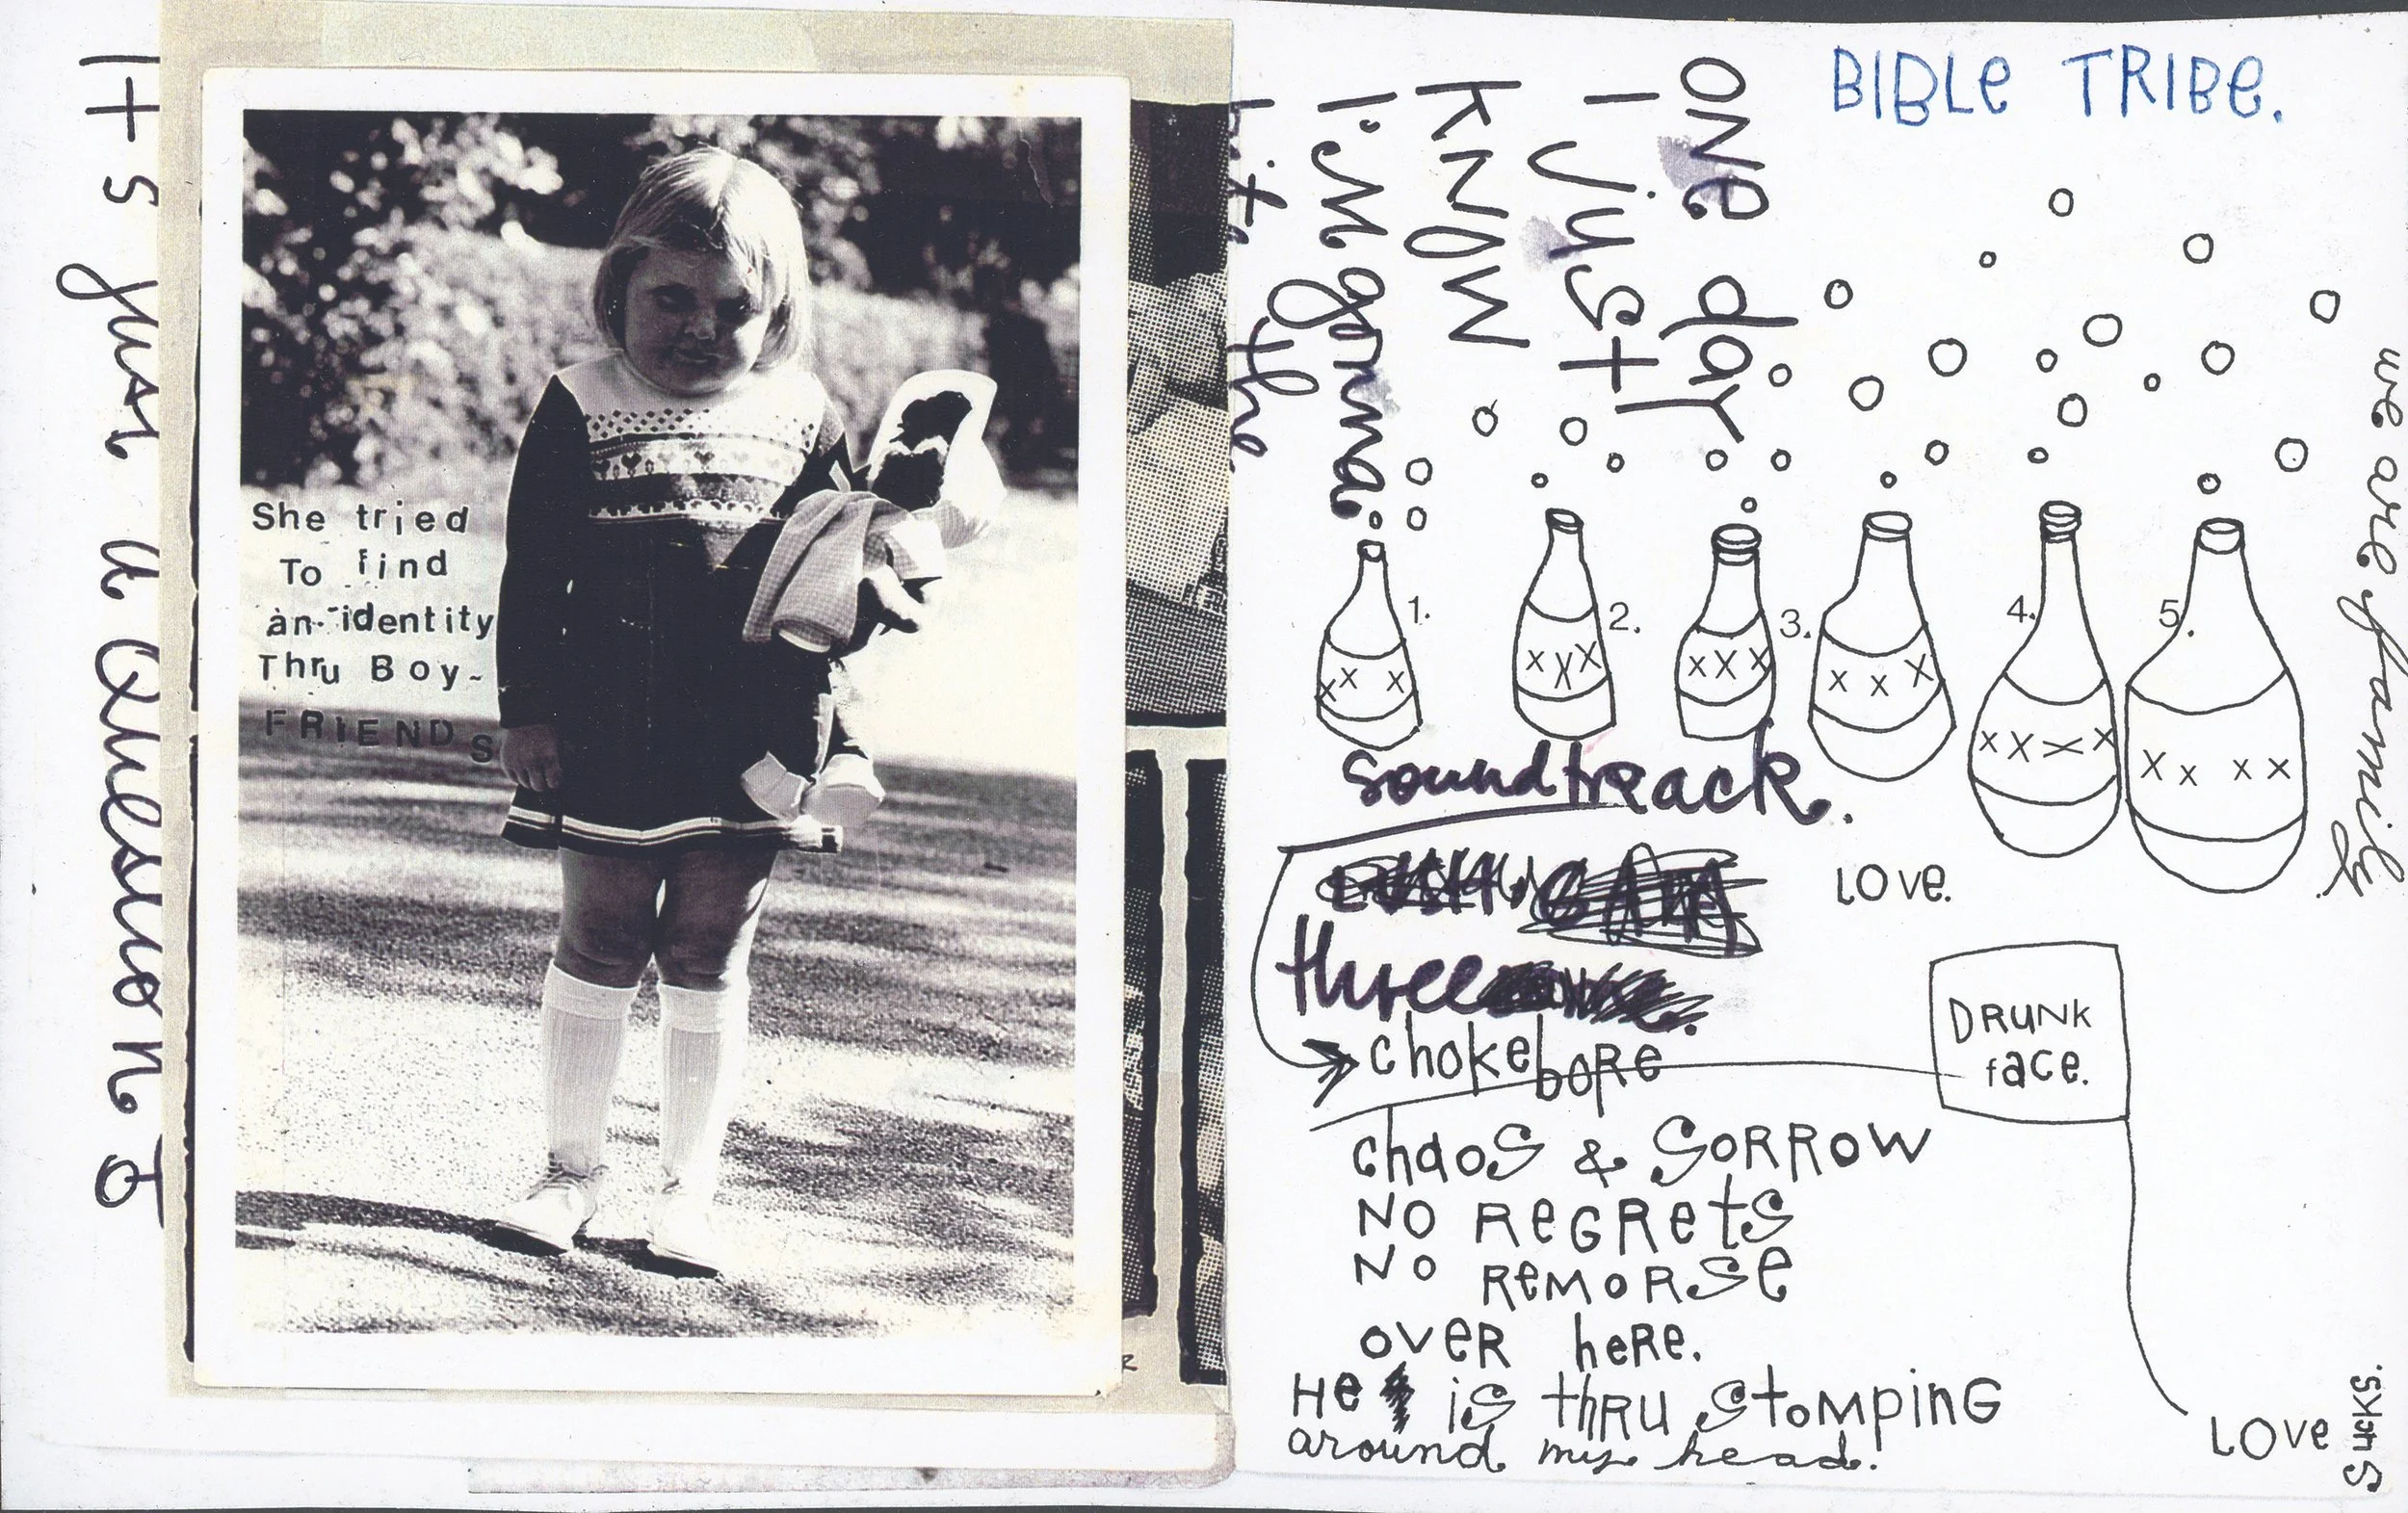 It s just a Question
She tried
To find
an identity
Thru Boy-
FRIENDS
BIBLe TRIBe.
ONe day
I just
KNOW
I'M gonna
we are family
1.
2.
3.
4.
5.
x x x
x y x
x x x
x x x
x x x x
x x x x
soundtrack.
LOve.
three
chokeboRe
DRUNk
face.
chaos & SORROW
NO ReGRets
NO ReMORSe
oveR heRe.
He is thRu StoMpiNG
around my head.
LOve
SucKS.